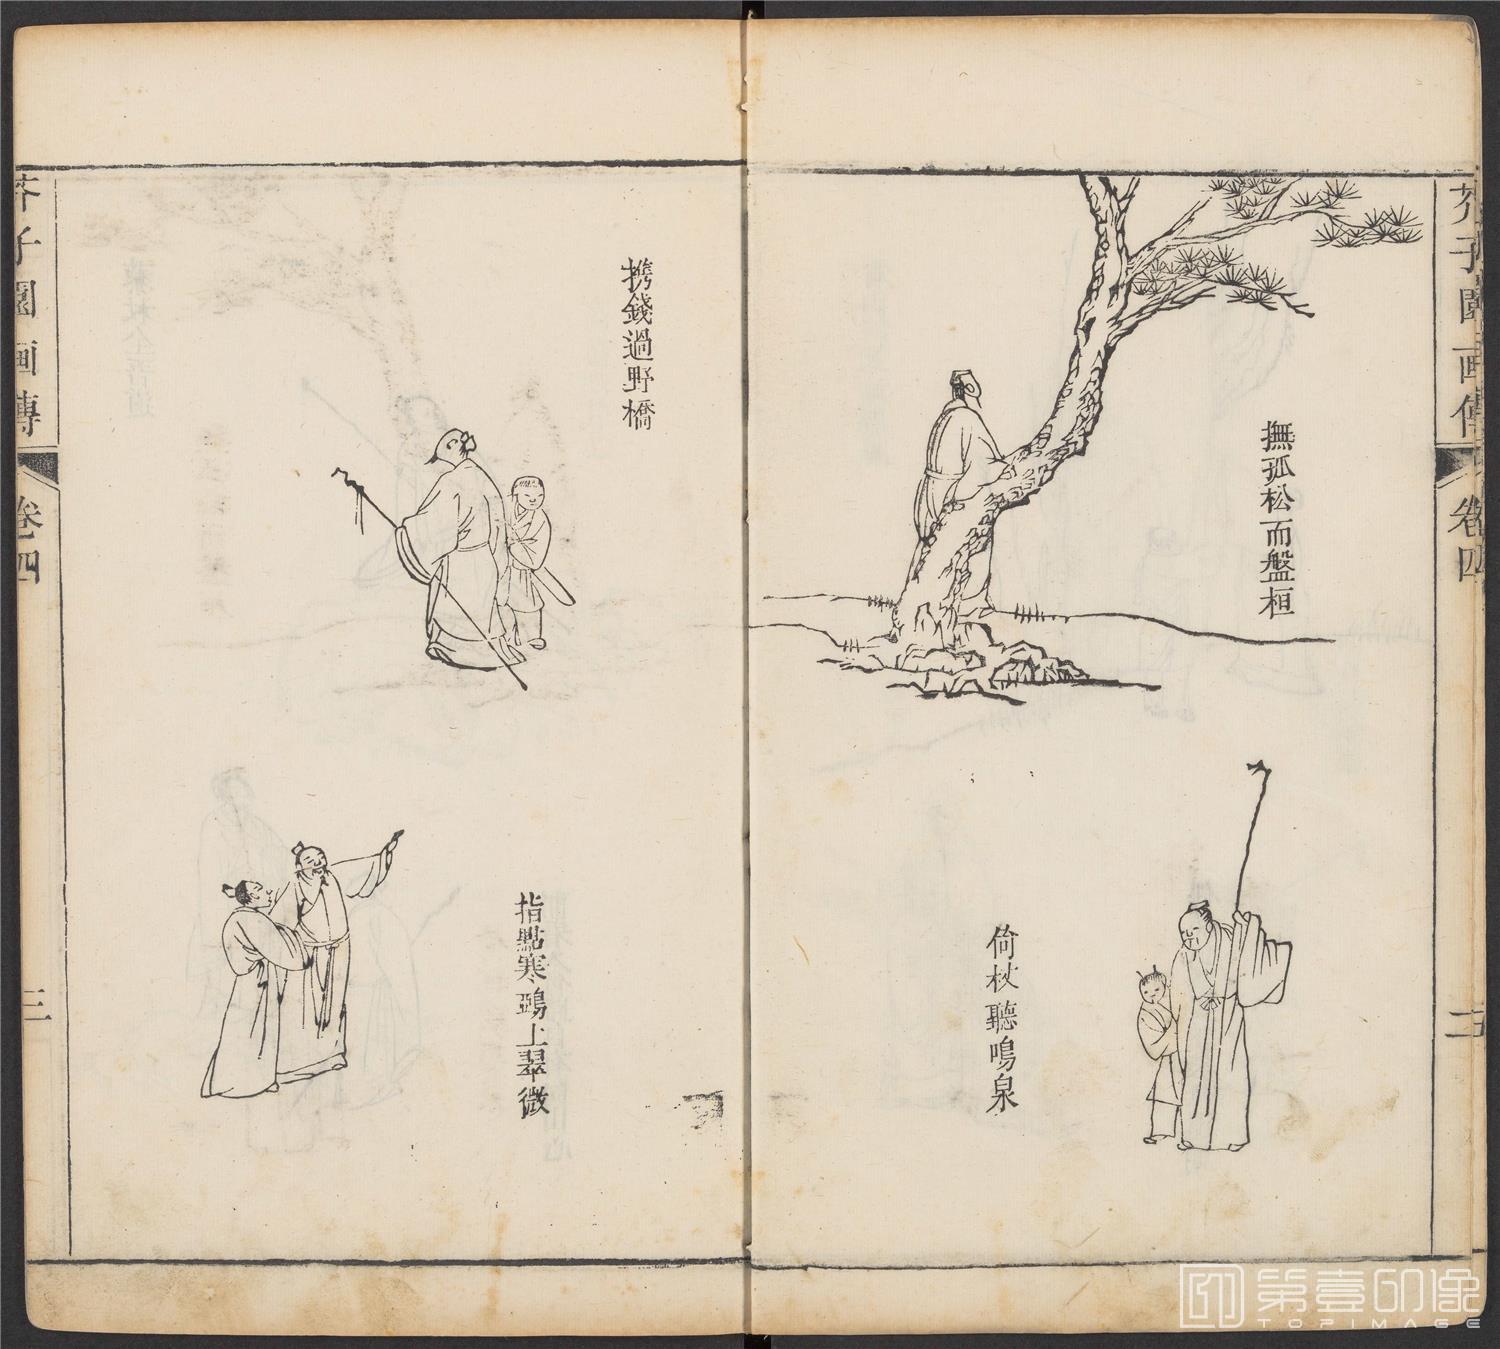 芥子園画傳
卷四
撫孤松而盤桓
倚杖聽鳴泉
携錢過野橋
指點寒鴉上翠微
芥子園画傳
卷四
三
第壹印像
TOPIMAGE